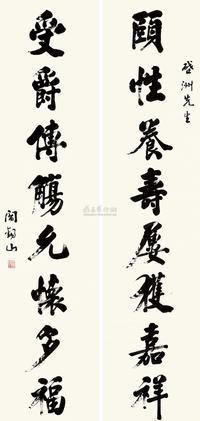 啟洲先生
頤性養壽屢獲嘉祥
受爵傳觴允懷多福
閻錫山